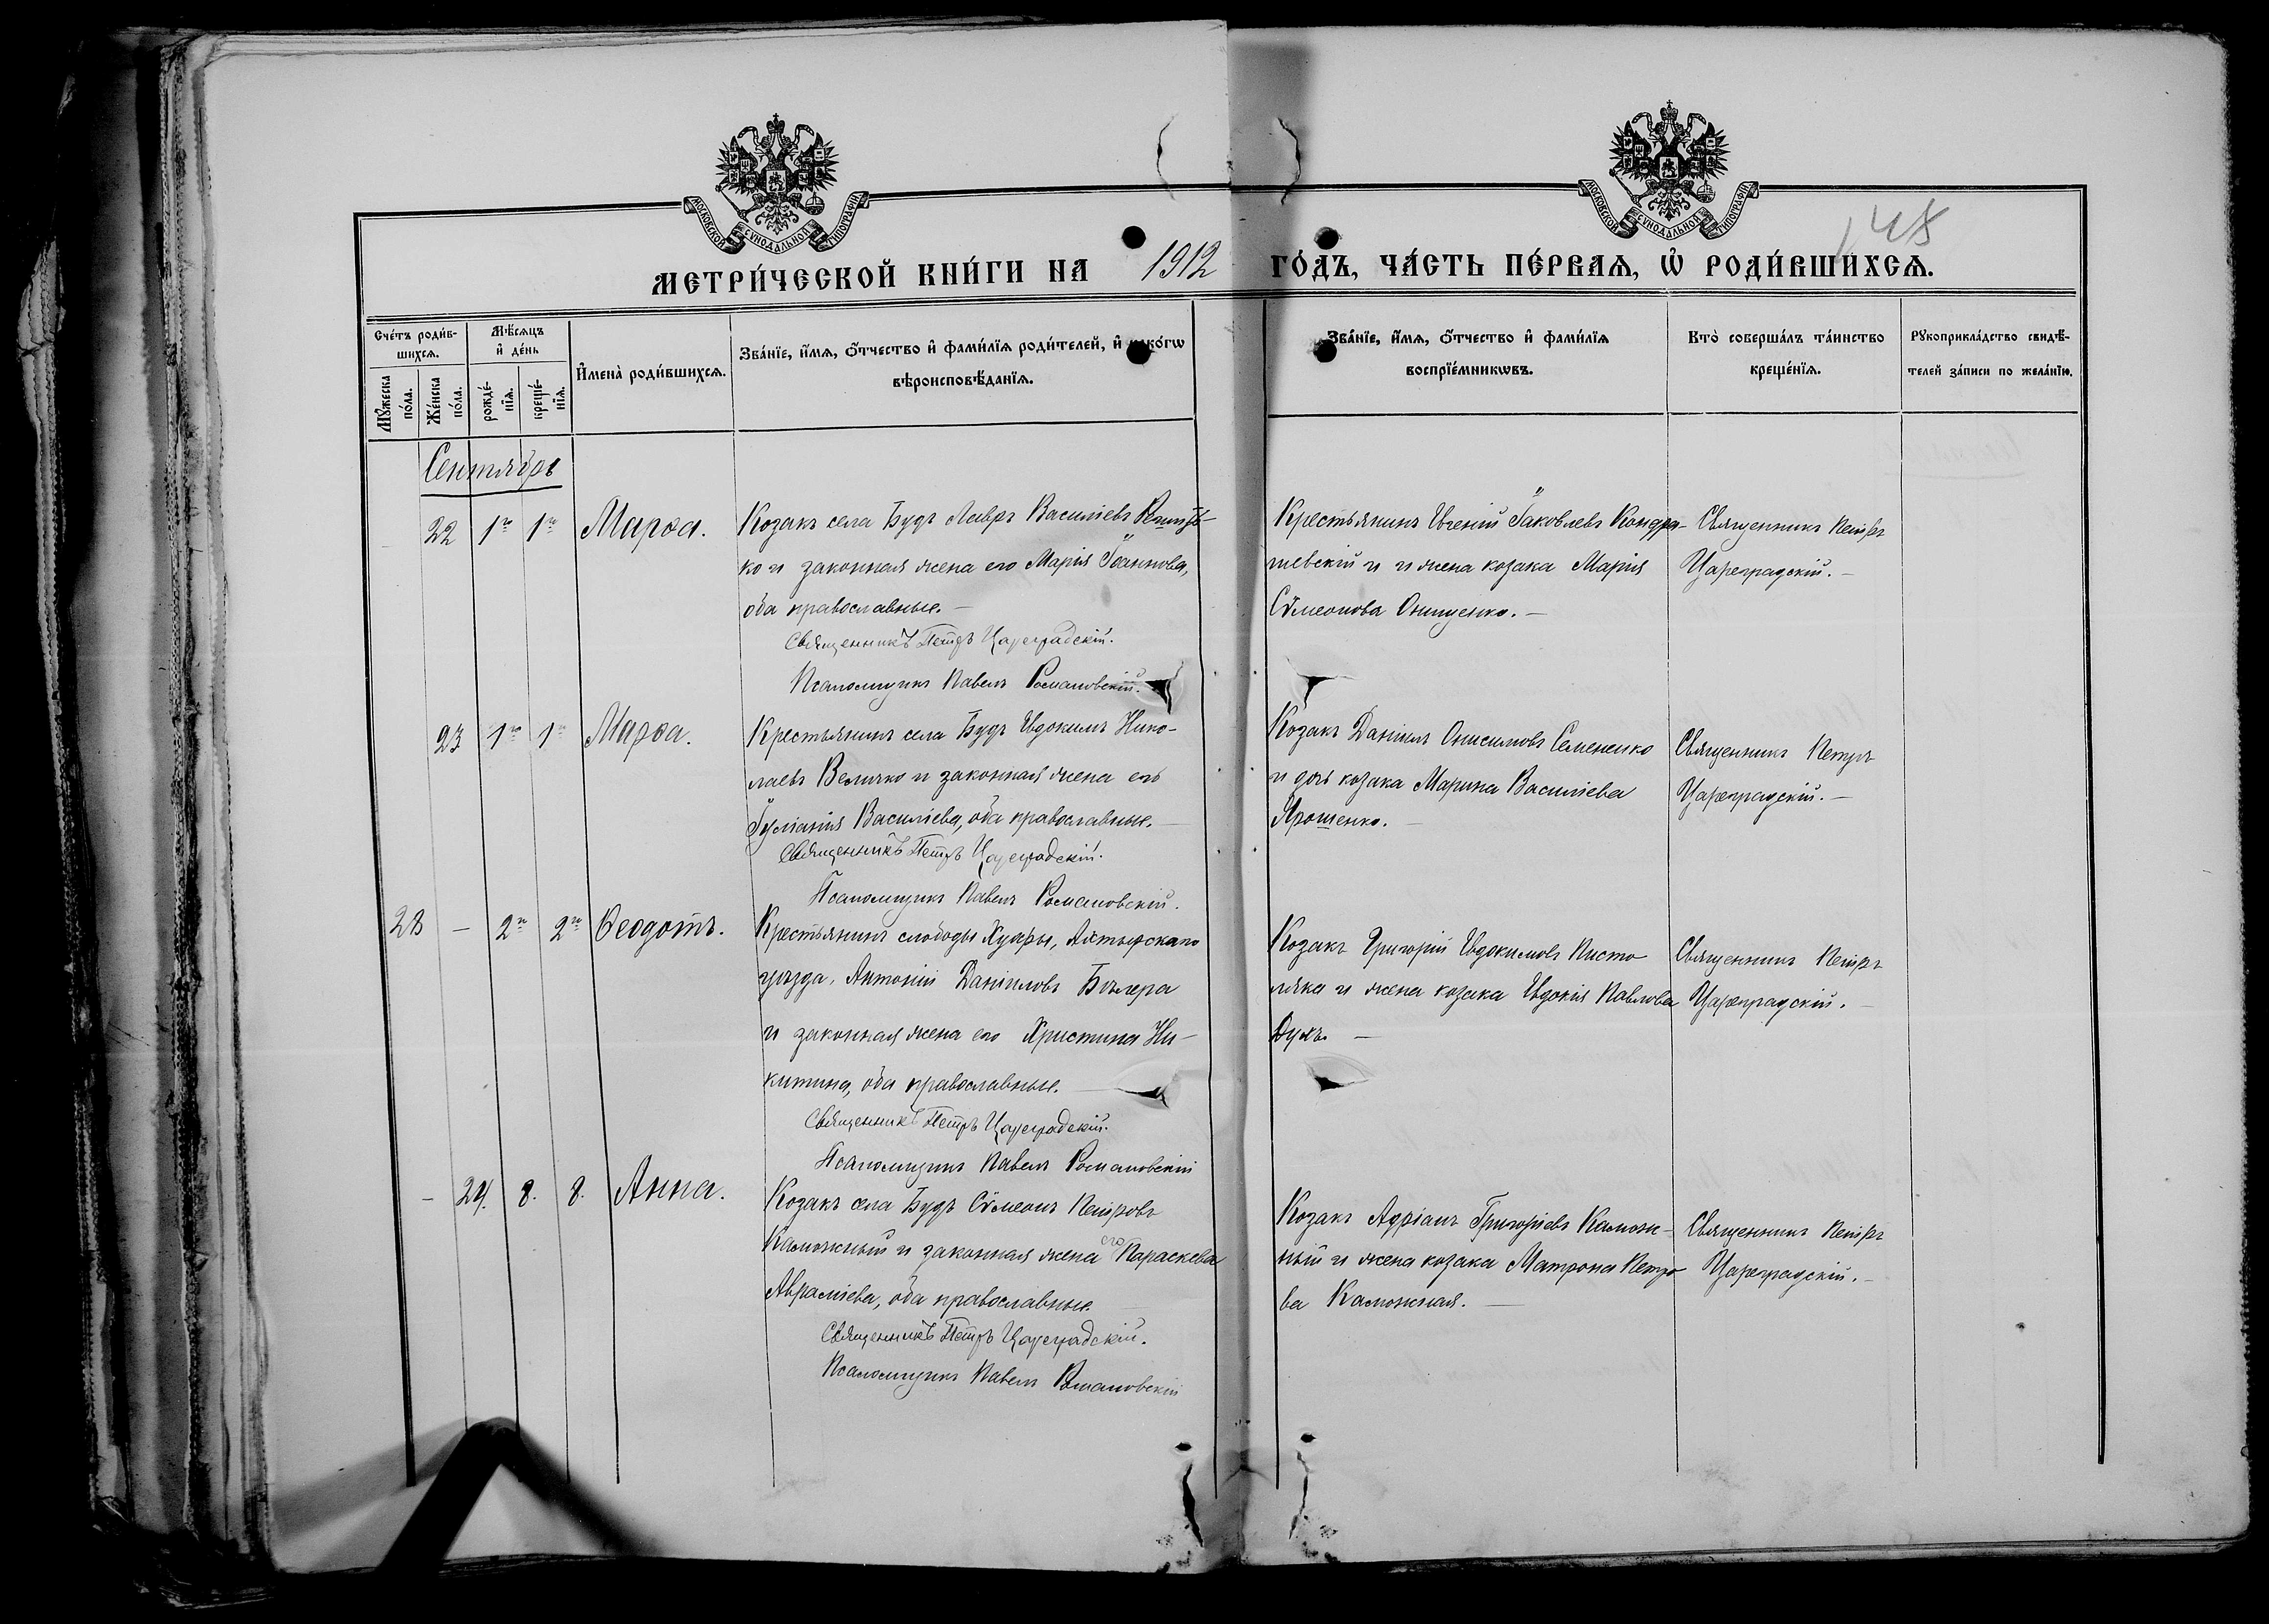 МОСКОВСКОЙ СѴНОДАЛЬНОЙ ТИПОГРАФІИ
МОСКОВСКОЙ СѴНОДАЛЬНОЙ ТИПОГРАФІИ
148
МЕТРИ́ЧЕСКОЙ КНИ́ГИ НА 1912 ГО́ДЪ, ЧА́СТЬ ПЕ́РВАЯ, Ѡ҆ РОДИ́ВШИХСЯ.
Сче́тъ роди́в-
шихся.
Мꙋ́жеска по́ла.
Же́нска по́ла.
Мѣ́сяцъ и҆ де́нь
рожде́-
нїя.
креще́-
нїя.
И҆мена̀ роди́вшихся.
Зва́нїе, и҆́мя, ѻ҆́тчество и҆ фами́лїя роди́телей, и҆ како́гѡ
вѣроисповѣ́данїя.
Зва́нїе, и҆́мя, ѻ҆́тчество и҆ фами́лїя
воспрїе́мникѡвъ.
Кто̀ соверша́лъ та́инство
креще́нїя.
Рꙋкоприкла́дство свидѣ́-
телей за́писи по жела́нїю.
Сентябрь
22 1го 1го Марѳа.
Козакъ села Будъ Лавръ Василіевъ
ко и законная жена его Марія Іоаннова,
оба православные. —
Священникъ Петръ Цареградскій.
Псаломщикъ Павелъ Романовскій.
Крестьянинъ Евгеній Іаковлевъ Кондра-
шевскій и и жена козака Марія
Сѵмеонова Онищенко. —
Священникъ Петръ
Цареградскій. —
23 1го 1го Марѳа.
Крестьянинъ села Будъ Евдокимъ Нико-
лаевъ Величко и законная жена его
Іуліанія Василіева, оба православные. —
Священникъ Петръ Цареградскій.
Псаломщикъ Павелъ Романовскій.
Козакъ Даніилъ Онисимовъ Семененко
и дочь козака Марина Василіева
Ярошенко. —
Священникъ Петръ
Цареградскій. —
23 — 2го 2го Ѳеодотъ.
Крестьянинъ слободы Ахтырскаго
уѣзда, Антоній Даніиловъ
и законная жена его Христина Ни-
китина, оба православные. —
Священникъ Петръ Цареградскій.
Псаломщикъ Павелъ Романовскій
Козакъ Григорій Евдокимовъ Писто
ляка и жена козака Евдокія Павлова
—
Священникъ Петръ
Цареградскій. —
— 24. 8. 8. Анна.
Козакъ села Будъ Сѵмеонъ Петровъ
Каложный и законная жена его Параскева
Авраміева, оба православные —
Священникъ Петръ Цареградскій.
Псаломщикъ Павелъ Романовскій
Козакъ Адріанъ Григоріевъ Калож-
ный и жена козака Матрона Петро
ва Каложная. —
Священникъ Петръ
Цареградскій. —